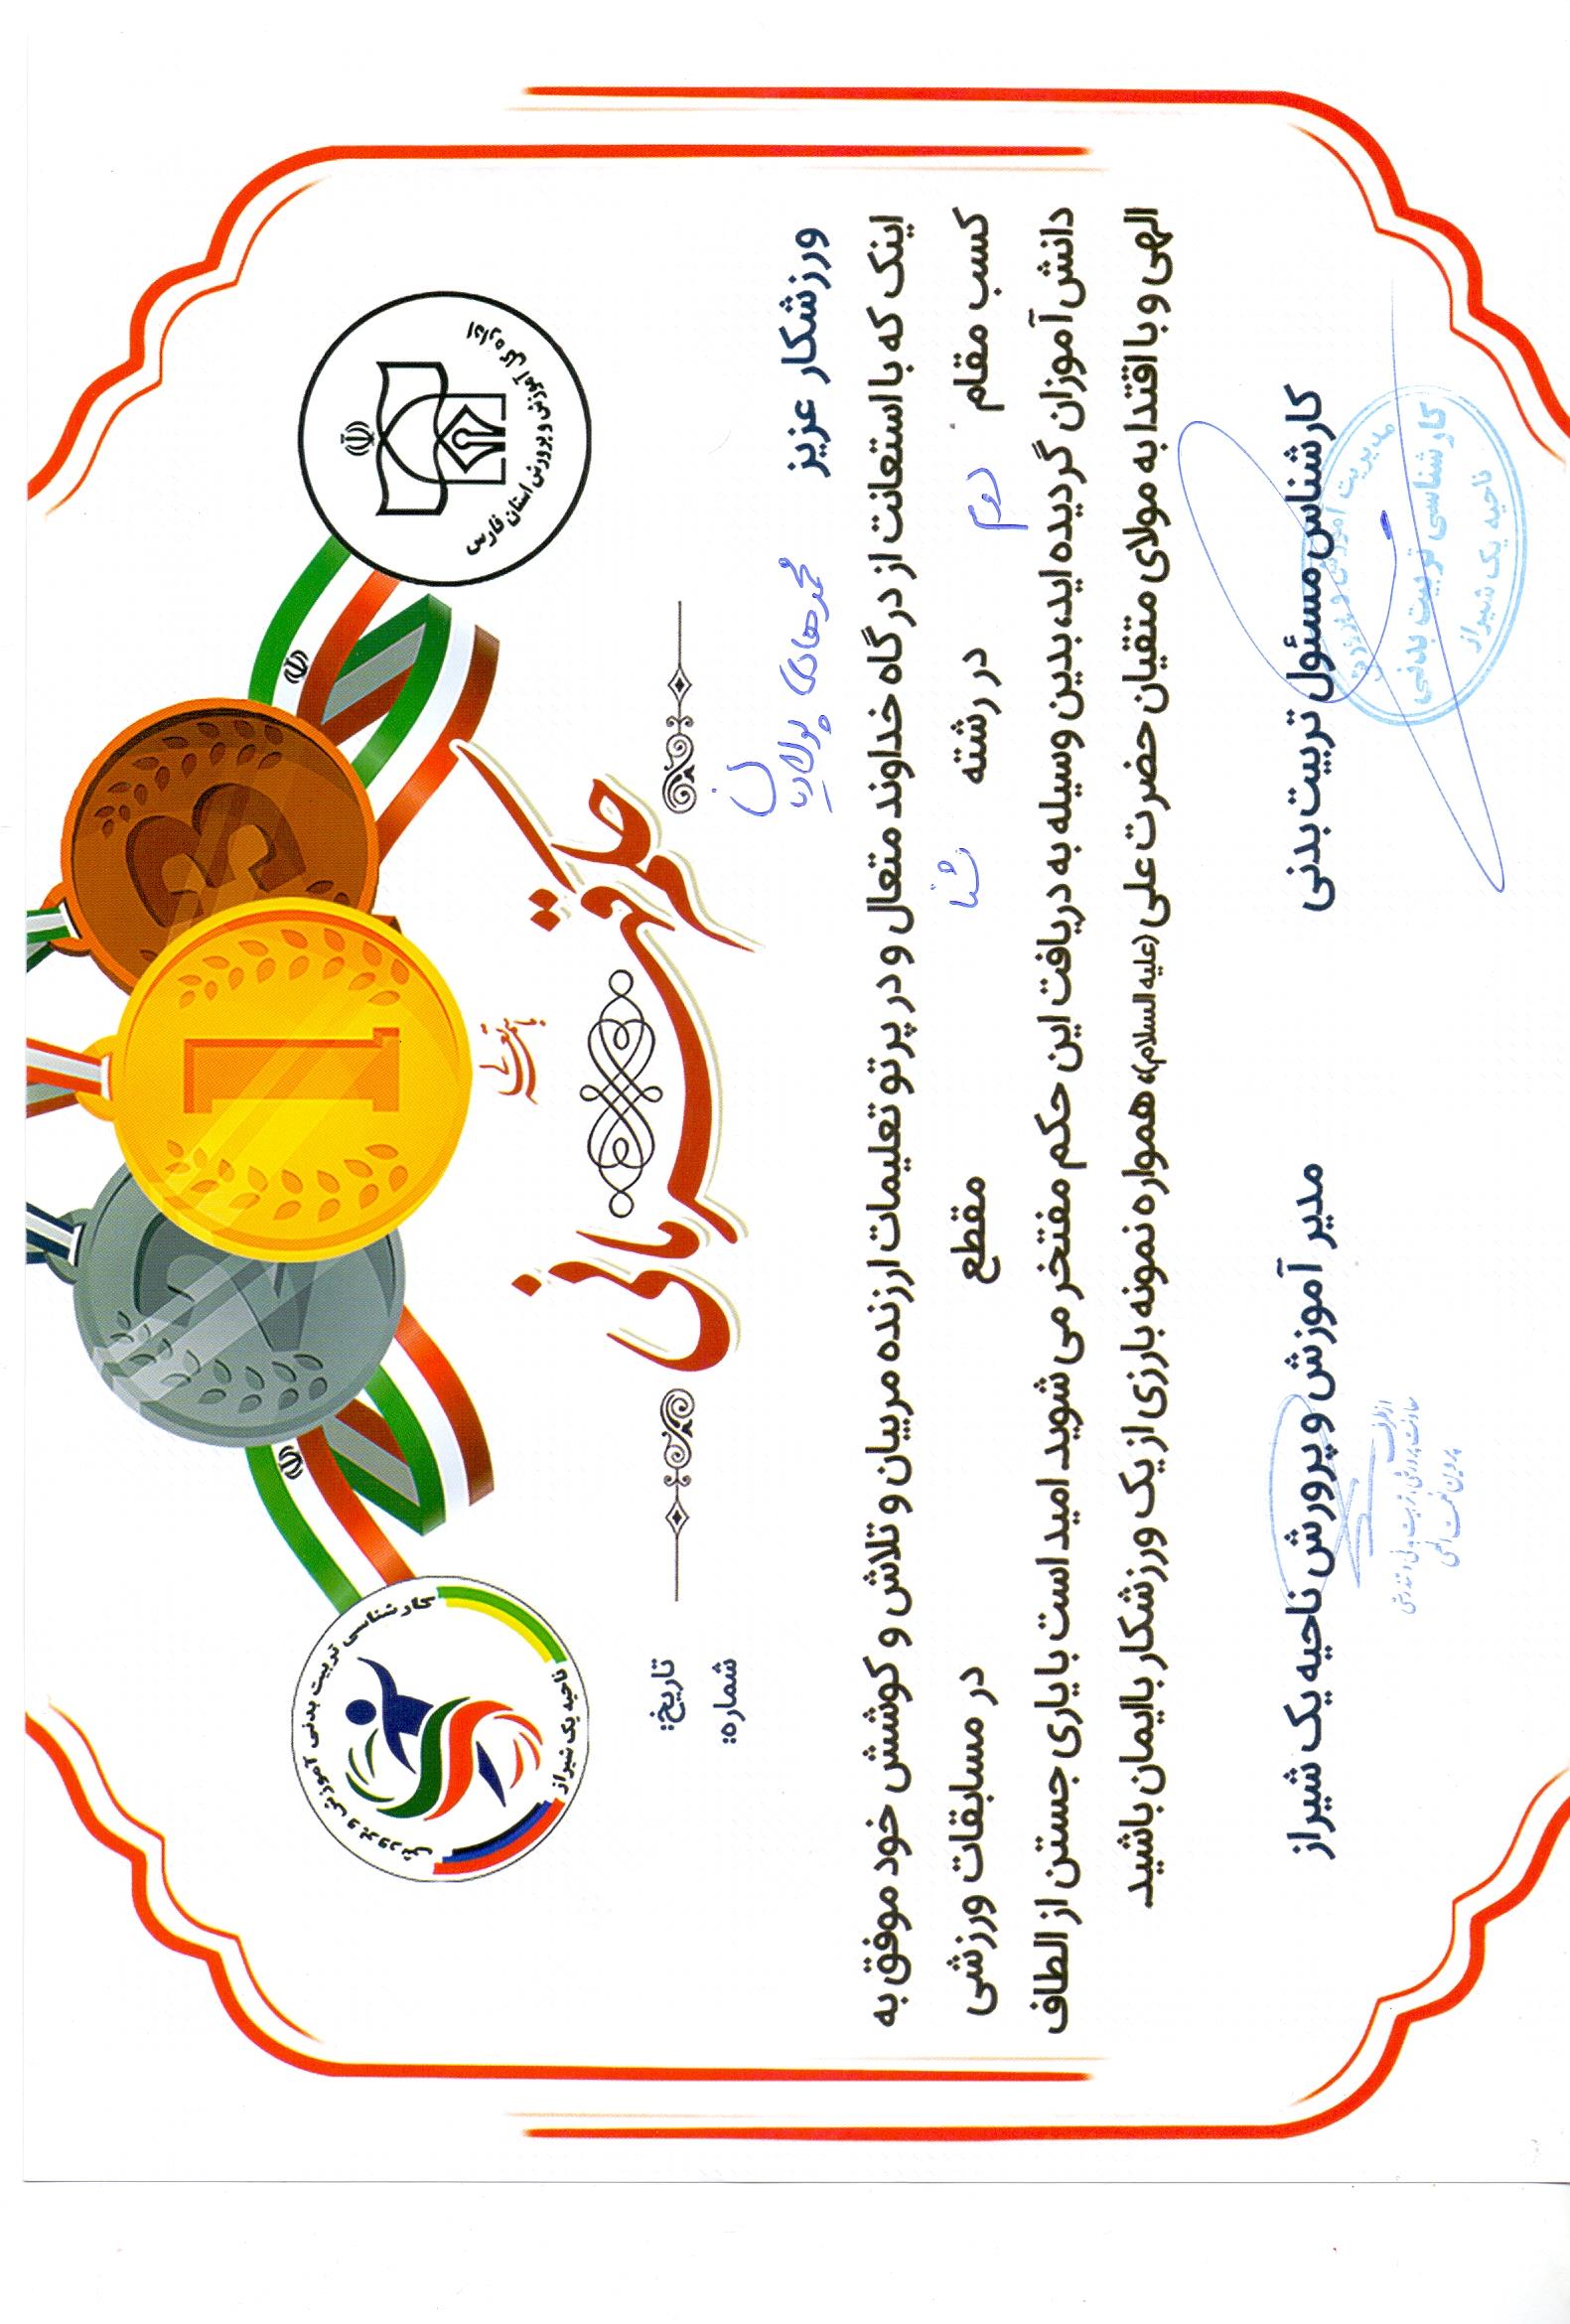 اداره کل آموزش و پرورش استان فارس
کارشناسی تربیت بدنی آموزش و پرورش
ناحیه یک شیراز
3
1
2
باسمه تعالی
حکم قهرمانی
تاریخ:
شماره:
ورزشکار عزیز محمدهادی پولادیان
اینک که با استعانت از درگاه خداوند متعال و در پرتو تعلیمات ارزنده مربیان و تلاش و کوشش خود موفق به
کسب مقام دوم در رشته شنا مقطع در مسابقات ورزشی
دانش آموزان گردیده اید، بدین وسیله به دریافت این حکم مفتخر می شوید امید است با یاری جستن از الطاف
الهی و با اقتدا به مولای متقیان حضرت علی (علیه السلام)، همواره نمونه بارزی از یک ورزشکار باایمان باشید.
کارشناس مسئول تربیت بدنی
مدیر آموزش و پرورش ناحیه یک شیراز
مدیریت آموزش و پرورش
کارشناسی تربیت بدنی
ناحیه یک شیراز
از طرف
معاونت پرورشی و تربیت بدنی و تندرستی
پروین نعمت الهی